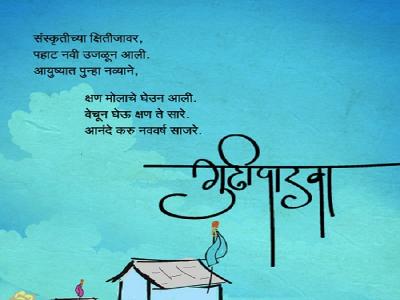 संस्कृतीच्या क्षितीजावर,
पहाट नवी उजळून आली.
आयुष्यात पुन्हा नव्याने,
क्षण मोलाचे घेउन आली.
वेचून घेऊ क्षण ते सारे.
आनंदे करु नववर्ष साजरे.
गुढीपाडवा